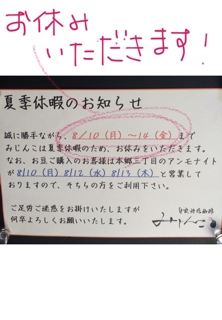 お休み
いただきます!
夏季休暇のお知らせ
誠に勝手ながら、8/10(月)〜14(金)まで
みじんこは夏季休暇のため、お休みをいただきます。
なお、お豆ご購入のお客様は本郷三丁目のアンモナイト
が8/10(月)8/12(水)8/13(木)と営業して
おりますので、そちらの方をご利用下さい。
ご足労ご迷惑をお掛けいたしますが
何卒よろしくお願いいたします。
みじんこ